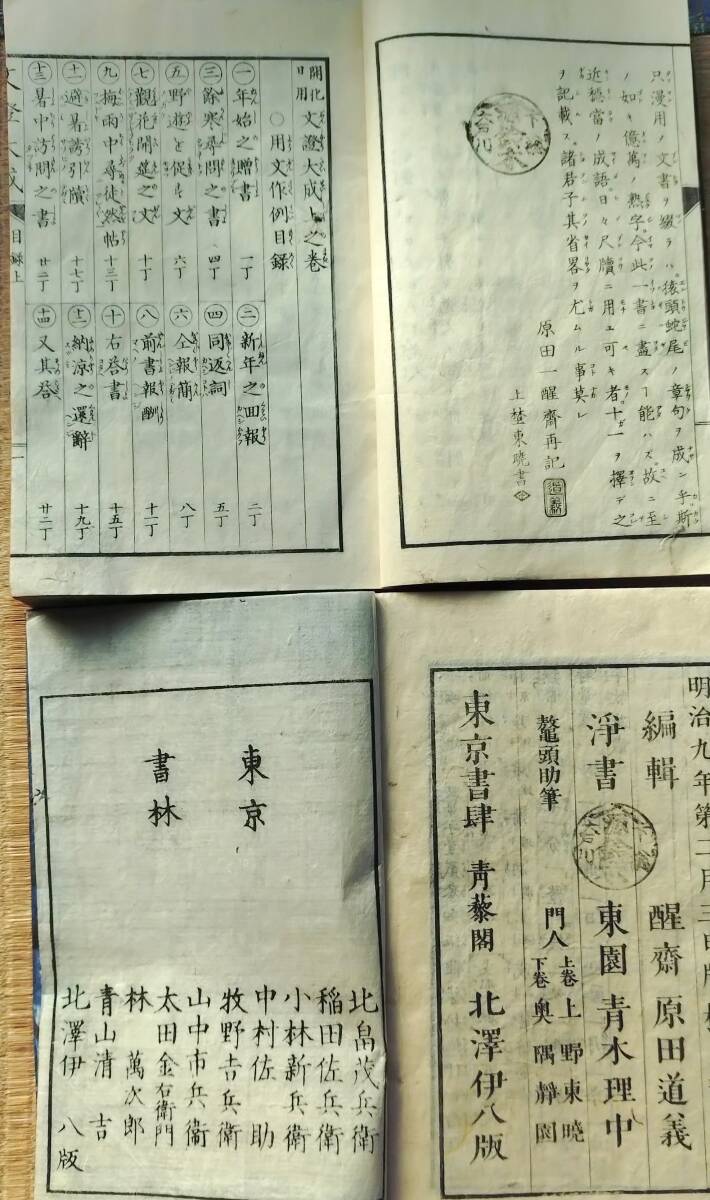 只漫用ノ文書ヲ綴ラハ猿頭蛇尾ノ章句ヲ成ン乎斯
ノ如キ億萬ノ熟字今此一書ニ盡スヿ能ハズ故ニ至
近穏當ノ成語日々尺牘ニ用ユ可キ者十一ヲ擇デ之
ヲ記載ス諸君子其省畧ヲ尤ムル事莫レ
原田一醒齋再記
道義
上埜東曉書
開化日用文證大成上之巻
〇用文作例目録
一 年始之贈書 一丁
二 新年之回報 二丁
三 餘寒尋問之書 四丁
四 同返詞 五丁
五 野遊を促す文 六丁
六 仝報簡 八丁
七 觀花開筵之文 十丁
八 前書報酬 十一丁
九 梅雨中尋徒然帖 十三丁
十 右答書 十五丁
十一 避暑誘引牘 十七丁
十二 納凉之還辭 十九丁
十三 暑中訪問之書 廿二丁
十四 又其答 廿二丁
文證大成 目録上 一
明治九年第二月三日版
編輯 醒齋 原田道義
淨書 東園 青木理中
鼇頭助筆 門人 上巻 上野東曉
下巻 奥隅靜園
東京書肆 青藜閣 北澤伊八版
東京
書林
北畠茂兵衛
稲田佐兵衛
小林新兵衛
中村佐助
牧野吉兵衛
山中市兵衛
太田金右衛門
林萬次郎
青山清吉
北澤伊八版